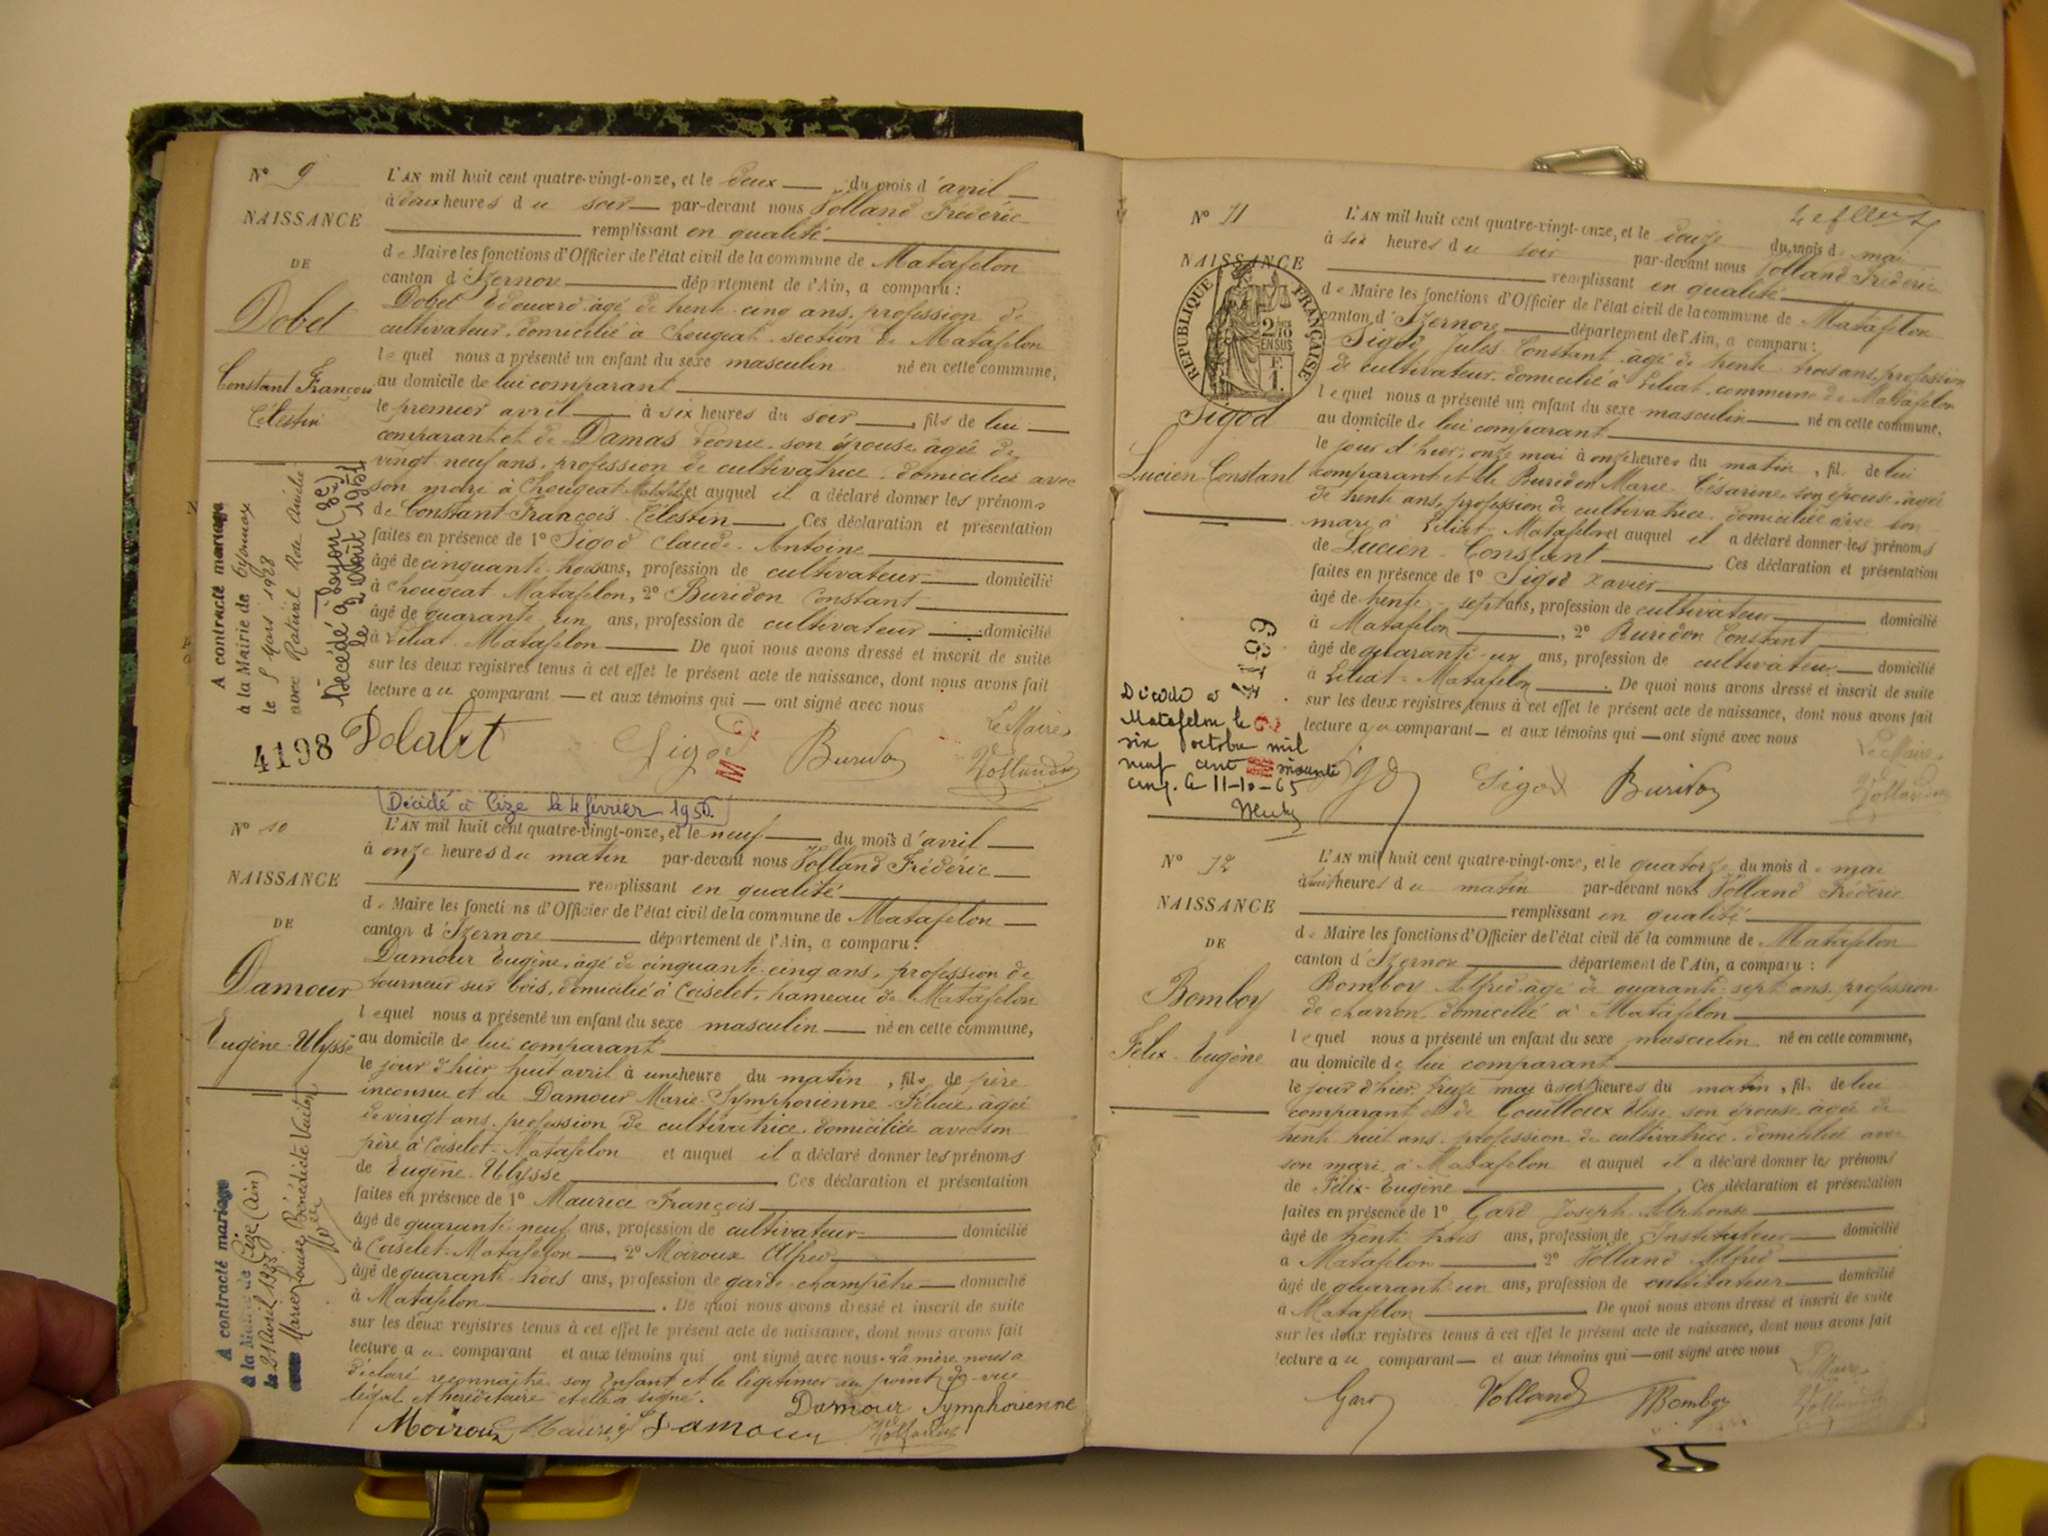 N° 9
NAISSANCE
DE
Dobet
Constant François
Célestin
L'AN mil huit cent quatre-vingt-onze, et le deux du mois d'avril
à deux heures du soir par-devant nous Volland Frédéric
remplissant en qualité
de Maire les fonctions d'Officier de l'état civil de la commune de Matafelon
canton d'Izernore département de l'Ain, a comparu :
Dobet Edouard âgé de trente cinq ans, profession de
cultivateur, domicilié à Chougeat section de Matafelon
lequel nous a présenté un enfant du sexe masculin né en cette commune,
au domicile de lui comparant
le premier avril à six heures du soir, fils de lui
comparant et de Damas son épouse âgée de
vingt neuf ans, profession de cultivatrice, domiciliée avec
son mari à Chougeat Matafelon et auquel il a déclaré donner les prénoms
de Constant François Célestin Ces déclaration et présentation
faites en présence de 1° Sigod Claude Antoine
âgé de cinquante trois ans, profession de cultivateur domicilié
à Chougeat Matafelon, 2° Buridon Constant
âgé de quarante un ans, profession de cultivateur domicilié
à Liliat Matafelon De quoi nous avons dressé et inscrit de suite
sur les deux registres tenus à cet effet le présent acte de naissance, dont nous avons fait
lecture au comparant et aux témoins qui ont signé avec nous
Le Maire
Sigod Buridon Volland
A contracté mariage
à la Mairie de Oyonnax
le 5 mars 1928
avec
Décédé à Lyon (3e)
le 2 Août 1951
4198
Décédé à Cize le 4 février 1950.
N° 10
NAISSANCE
DE
Damour
Eugène-Ulysse
L'AN mil huit cent quatre-vingt-onze, et le neuf du mois d'avril
à onze heures du matin par-devant nous Volland Frédéric
remplissant en qualité
de Maire les fonctions d'Officier de l'état civil de la commune de Matafelon
canton d'Izernore département de l'Ain, a comparu :
Damour Eugène, âgé de cinquante-cinq ans, profession de
tourneur sur bois, domicilié à Coiselet, hameau de Matafelon
lequel nous a présenté un enfant du sexe masculin né en cette commune,
au domicile de lui comparant
le jour d'hier huit avril à une heure du matin, fils de père
inconnu et de Damour Marie Symphorienne Félicie, âgée
de vingt ans, profession de cultivatrice, domiciliée avec son
père à Coiselet-Matafelon et auquel il a déclaré donner les prénoms
de Eugène-Ulysse Ces déclaration et présentation
faites en présence de 1° Maurice François
âgé de quarante-neuf ans, profession de cultivateur domicilié
à Coiselet-Matafelon, 2° Moiroux Alfred
âgé de quarante-trois ans, profession de garde-champêtre domicilié
à Matafelon. De quoi nous avons dressé et inscrit de suite
sur les deux registres tenus à cet effet le présent acte de naissance, dont nous avons fait
lecture au comparant et aux témoins qui ont signé avec nous. La mère nous a
déclaré reconnaître son enfant et le légitimer au point de vue
légal et héréditaire et elle a signé.
Damour Symphorienne
Moiroux Maurice Damour Volland
A contracté mariage
à la Mairie de Cize (Ain)
le 21 Avril 1935
avec Marie Louise Bénédicte
N° 11
NAISSANCE
RÉPUBLIQUE FRANÇAISE
2/10 EN SUS
F. 1.
Sigod
Lucien-Constant
L'AN mil huit cent quatre-vingt-onze, et le douze du mois de mai
à six heures du soir par-devant nous Volland Frédéric
remplissant en qualité
de Maire les fonctions d'Officier de l'état civil de la commune de Matafelon
canton d'Izernore département de l'Ain, a comparu :
Sigod Jules-Constant âgé de trente-trois ans, profession
de cultivateur, domicilié à Liliat, commune de Matafelon
lequel nous a présenté un enfant du sexe masculin né en cette commune,
au domicile de lui comparant
le jour d'hier, onze mai à onze heures du matin, fils de lui
comparant et de Buridon Marie-Césarine, son épouse, âgée
de trente ans, profession de cultivatrice, domiciliée avec son
mari à Liliat-Matafelon et auquel il a déclaré donner les prénoms
de Lucien-Constant. Ces déclaration et présentation
faites en présence de 1° Sigod Xavier
âgé de trente-sept ans, profession de cultivateur domicilié
à Matafelon, 2° Buridon Constant
âgé de quarante-un ans, profession de cultivateur domicilié
à Liliat-Matafelon. De quoi nous avons dressé et inscrit de suite
sur les deux registres tenus à cet effet le présent acte de naissance, dont nous avons fait
lecture au comparant et aux témoins qui ont signé avec nous
Le Maire
Sigod Sigod Buridon Volland
4199
Décédé à
Matafelon le
six octobre mil
neuf cent soixante
cinq. Le 11-10-65
N° 12
NAISSANCE
DE
Bomboy
Félix-Eugène
L'AN mil huit cent quatre-vingt-onze, et le quatorze du mois de mai
à huit heures du matin par-devant nous Volland Frédéric
remplissant en qualité
de Maire les fonctions d'Officier de l'état civil de la commune de Matafelon
canton d'Izernore département de l'Ain, a comparu :
Bomboy Alfred âgé de quarante-sept ans, profession
de charron, domicilié à Matafelon
lequel nous a présenté un enfant du sexe masculin né en cette commune,
au domicile de lui comparant
le jour d'hier, treize mai à sept heures du matin, fils de lui
comparant et de Gouilloux Elise son épouse âgée de
trente huit ans, profession de cultivatrice, domiciliée avec
son mari à Matafelon et auquel il a déclaré donner les prénoms
de Félix-Eugène. Ces déclaration et présentation
faites en présence de 1° Gard Joseph Alphonse
âgé de trente trois ans, profession de Instituteur domicilié
à Matafelon, 2° Volland Alfred
âgé de quarante-un ans, profession de cultivateur domicilié
à Matafelon De quoi nous avons dressé et inscrit de suite
sur les deux registres tenus à cet effet le présent acte de naissance, dont nous avons fait
lecture au comparant et aux témoins qui ont signé avec nous
Le Maire
Gard Volland Bomboy Volland